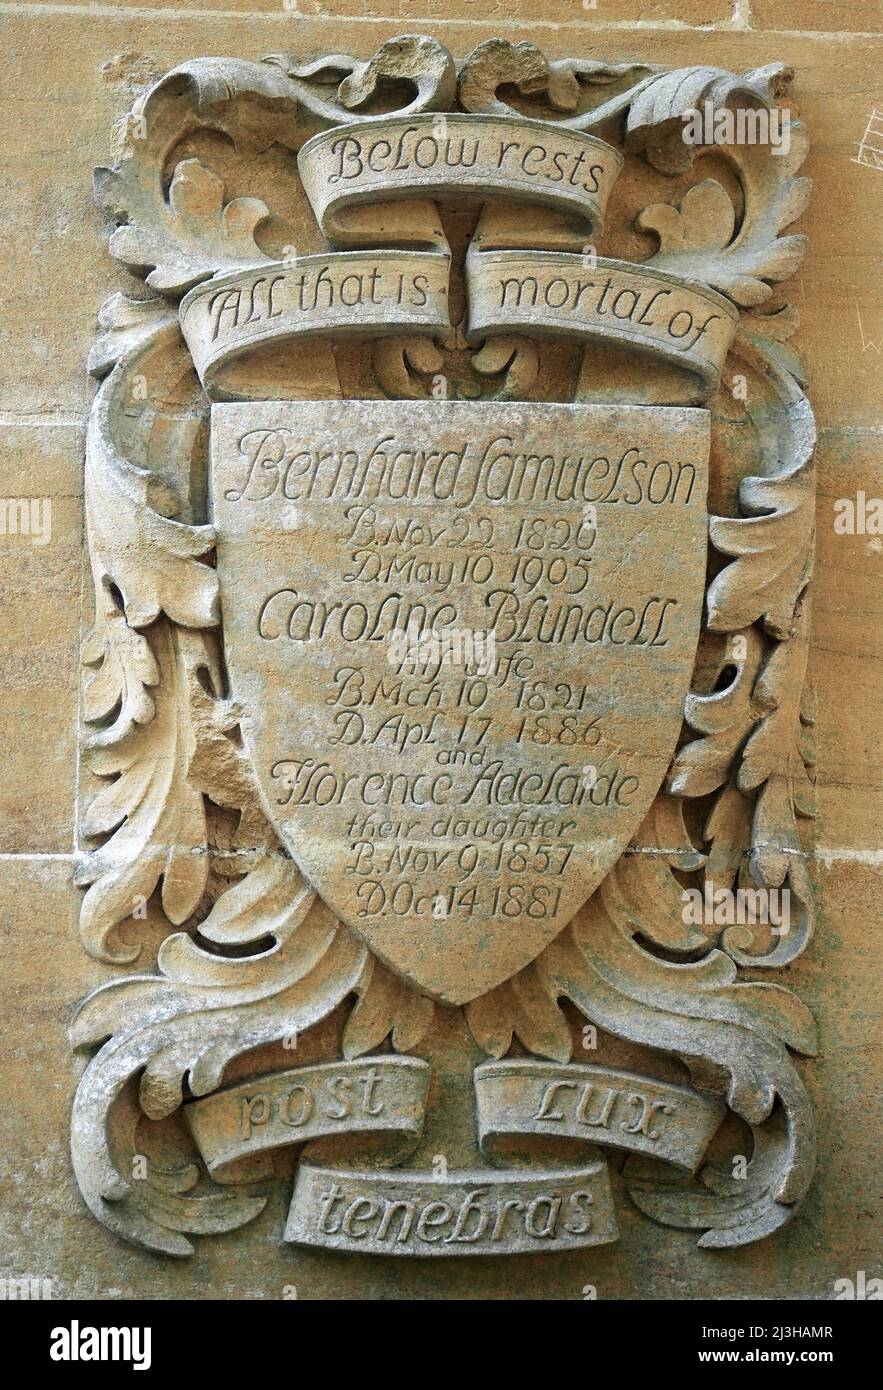 Below rests
All that is mortal of
Bernhard Samuelson
B. Nov 22 1820
D. May 10 1905
Caroline Blundell
his wife
B. Mch 19 1821
D. Apl 17 1886
and
Florence Adelaide
their daughter
B. Nov 9 1857
D. Oct 14 1881
post lux
tenebras
alamy
alamy
Image ID: 2J3HAMR
www.alamy.com